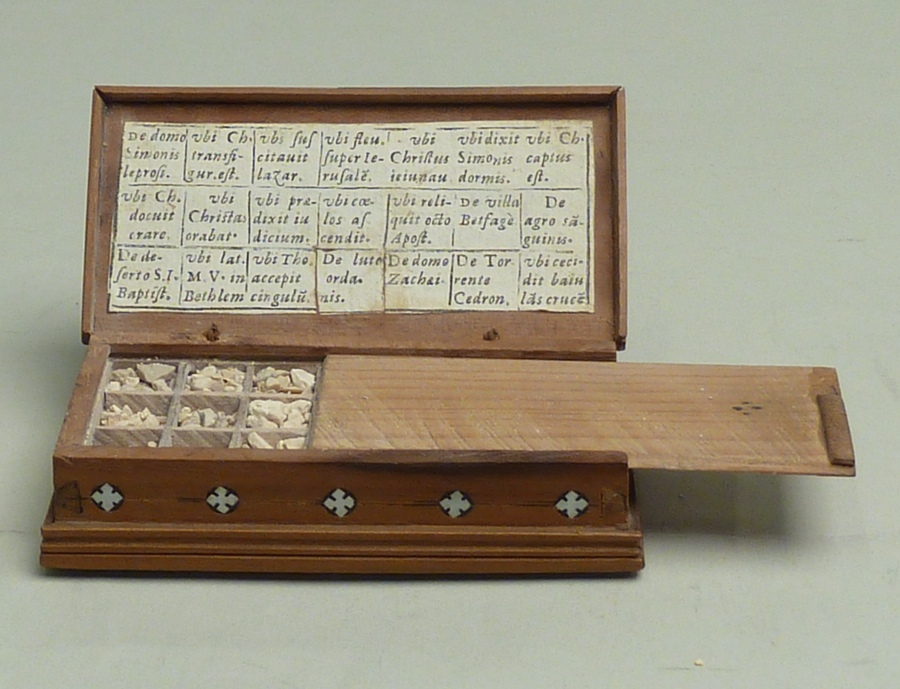 De domo
Simonis
leproſi.
vbi Ch.
tranſfi-
gur.eſt.
vbi ſuſ
citauit
lazar.
vbi fleu.
ſuper Ie-
ruſalē.
vbi
Chriſtus
ieiunau.
vbi dixit
Simonis
dormis.
vbi Ch.
captus
eſt.
vbi Ch.
docuit
crare.
vbi
Chriſtus
orabat.
vbi præ-
dixit iu
dicium.
vbi cœ-
los aſ
cendit.
vbi reli-
quit octo
Apoſt.
De villa
Betfagè
De
agro sā-
guinis.
De de-
ſerto S.I.
Baptiſt.
vbi lat.
M.V. in
Bethlem
vbi Tho.
accepit
cingulū.
De luto
orda.
nis.
De domo
Zachei.
De Tor-
rente
Cedron.
vbi ceci-
dit baiu
lās crucē